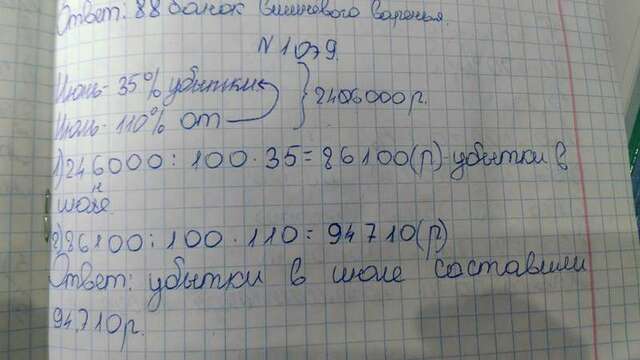 Ответ: 88 банок вишневого варенья.
N 1079.
Июнь- 35% убытки
Июль- 110% от
246000р.
1)246000:100·35=86100(р)-убытки в
июле.
н
2)86100:100·110=94710(р)
Ответ: убытки в июле составили
94710р.